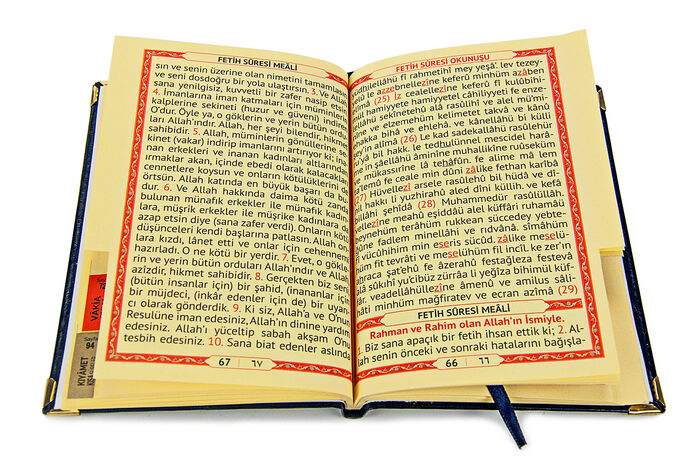 FETİH SÛRESİ OKUNUŞU
yüdhilellâhü fî rahmetihî mey yeşâ'. lev tezey-
yelû le azzebnellezîne keferû minhüm azâben
elîmâ (25) İz cealellezîne keferû fî kulûbihi-
hamiyyete hamiyyetel câhiliyyeti fe enze-
lellâhü sekînetehû alâ rasûlihî ve alel mü'mi-
nîne ve elzemehüm kelimetet takvâ ve kânû
ehakka bihâ ve ehlehâ. ve kânellâhü bi külli
şey'in alîmâ (26) Le kad sadekallâhü rasûlehür
bil hakk. le tedhulünnel mescidel harâ-
in şâellâhü âminîne muhallikîne ruûseküm
ve mükassırîne lâ tehâfûn. fe alime mâ lem
ta'lemû fe ceale min dûni zâlike fethan karîbâ
(27) Hüvellezî ersele rasûlehû bil hüdâ ve dî-
hakki li yuzhirahû aled dîni küllih. ve kefâ
billâhi şehîdâ (28) Muhammedür rasûlullâh.
vellezîne meahû eşiddâü alel küffâri ruhamâü
beynehüm terâhüm rukkean süccedey yebte-
fadlem minellâhi ve rıdvânâ. sîmâhüm
vücûhihim min eseris sücûd. zâlike meselü-
fit tevrâti ve meselühüm fil incîl. ke zer'ın
ahraca şat'ehû fe âzerahû festağleza festevâ
alâ sûkıhî yu'cibüz zürrâa li yeğîza bihimül küf-
veadellâhüllezîne âmenû ve amilus sâli-
hâti minhüm mağfiratev ve ecran azîmâ (29)
FETİH SÛRESİ MEÂLİ
Rahman ve Rahim olan Allah'ın İsmiyle.
1. Biz sana apaçık bir fetih ihsan ettik ki; 2. Al-
lah senin önceki ve sonraki hatalarını bağışla-
66 ٦٦
FETİH SÛRESİ MEÂLİ
sın ve senin üzerine olan nimetini tamamlasın
ve seni dosdoğru bir yola ulaştırsın. 3. Ve Allah
sana yenilgisiz, kuvvetli bir zafer nasip etsin
4. İmanlarına iman katmaları için müminlerin
kalplerine sekineti (huzur ve güveni) indiren
O'dur. Öyle ya, o göklerin ve yerin bütün ordu-
ları Allah'ındır. Allah, her şeyi bilendir, hikmet
sahibidir. 5. Allah, müminlerin gönüllerine, se-
kinet (vakar) indirip imanlarını artırıyor ki; iman
eden erkekleri ve inanan kadınları altlarından
ırmaklar akan, içinde ebedi olarak kalacakları
cennetlere koysun ve onların kötülüklerini
örtsün. Allah katında en büyük başarı da bu-
dur. 6. Ve Allah hakkında daima kötü zanda
bulunan münafık erkekler ile münafık kadın-
lara, müşrik erkekler ile müşrike kadınlara da
azap etsin diye (sana zafer verdi). Onların kötü
düşünceleri kendi başlarına patlasın. Allah on-
lara kızdı, lânet etti ve onlar için cehennemi
hazırladı. O ne kötü bir yerdir. 7. Evet, o gökle-
rin ve yerin bütün orduları Allah'ındır ve Allah
azîzdir, hikmet sahibidir. 8. Gerçekten biz seni
(bütün insanlar için) bir şahid, (inananlar için)
bir müjdeci, (inkâr edenler için de) bir uyarı-
cı olarak gönderdik. 9. Ki siz, Allah'a ve O'nun
Resulüne iman edesiniz, Allah'ın dinine yardım
edesiniz. Allah'ı yüceltip sabah akşam O'nu
tesbih edesiniz. 10. Sana biat edenler aslında
67 ٦٧
VÂKIA
Sayfa
94
KIYÂMET